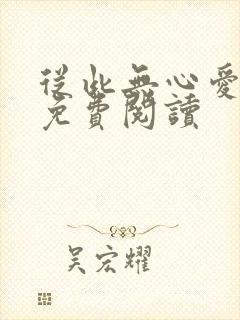 從此無心愛
免費閱讀
吴宏耀